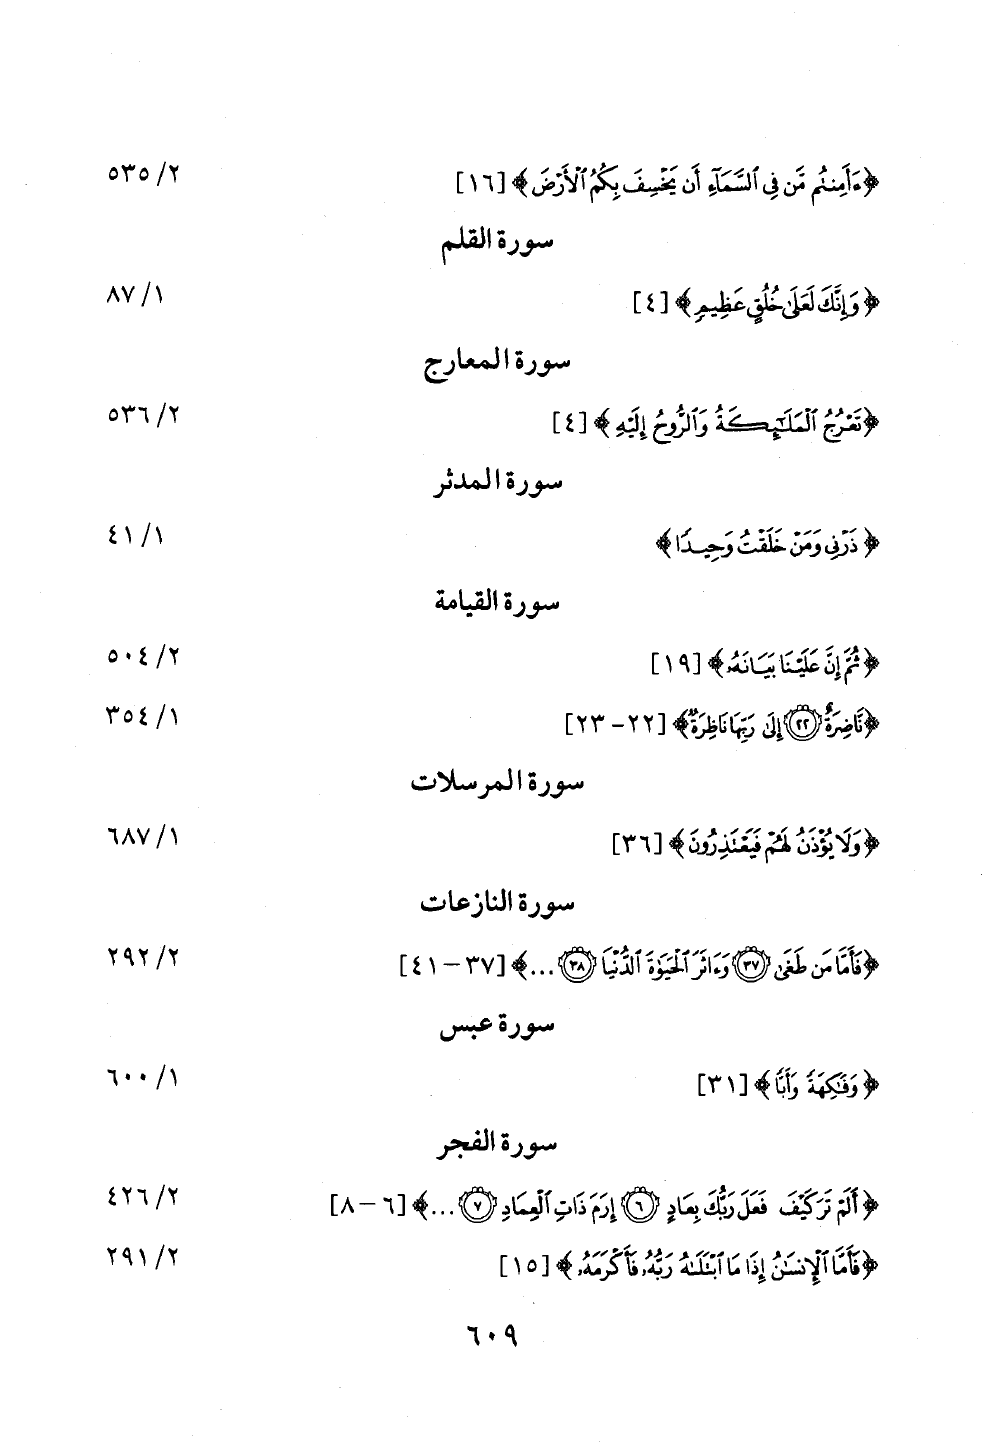 ﴿ءَأَمِنتُم مَّن فِى ٱلسَّمَآءِ أَن يَخْسِفَ بِكُمُ ٱلْأَرْضَ﴾ [١٦] ٢/ ٥٣٥
سورة القلم
﴿وَإِنَّكَ لَعَلَىٰ خُلُقٍ عَظِيمٍ﴾ [٤] ١/ ٨٧
سورة المعارج
﴿تَعْرُجُ ٱلْمَلَٰٓئِكَةُ وَٱلرُّوحُ إِلَيْهِ﴾ [٤] ٢/ ٥٣٦
سورة المدثر
﴿ذَرْنِى وَمَنْ خَلَقْتُ وَحِيدًا﴾ ١/ ٤١
سورة القيامة
﴿ثُمَّ إِنَّ عَلَيْنَا بَيَانَهُۥ﴾ [١٩] ٢/ ٥٠٤
﴿نَّاضِرَةٌ ٢٢ إِلَىٰ رَبِّهَا نَاظِرَةٌ﴾ [٢٢-٢٣] ١/ ٣٥٤
سورة المرسلات
﴿وَلَا يُؤْذَنُ لَهُمْ فَيَعْتَذِرُونَ﴾ [٣٦] ١/ ٦٨٧
سورة النازعات
﴿فَأَمَّا مَن طَغَىٰ ٣٧ وَءَاثَرَ ٱلْحَيَوٰةَ ٱلدُّنْيَا ٣٨ ...﴾ [٣٧-٤١] ٢/ ٢٩٢
سورة عبس
﴿وَفَٰكِهَةً وَأَبًّا﴾ [٣١] ١/ ٦٠٠
سورة الفجر
﴿أَلَمْ تَرَ كَيْفَ فَعَلَ رَبُّكَ بِعَادٍ ٦ إِرَمَ ذَاتِ ٱلْعِمَادِ ٧ ...﴾ [٦-٨] ٢/ ٤٢٦
﴿فَأَمَّا ٱلْإِنسَٰنُ إِذَا مَا ٱبْتَلَىٰهُ رَبُّهُۥ فَأَكْرَمَهُۥ﴾ [١٥] ٢/ ٢٩١
٦٠٩